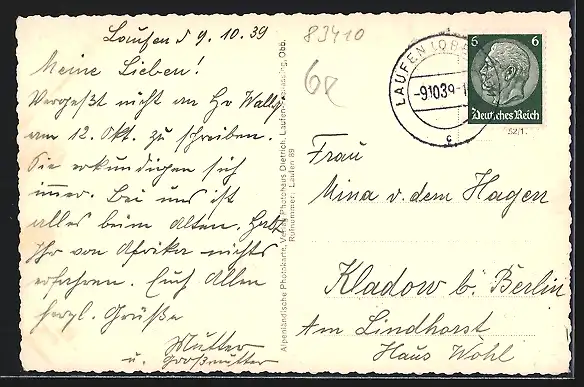 Laufen d 9. 10. 39
Meine Lieben!
Vergeßt nicht an Hr Wally
am 12. Okt. zu schreiben.
Sie erkundigen sich
immer. Bei uns ist
alles beim Alten. Habt
Ihr von Afrika nichts
erfahren. Euch Allen
herzl. Grüße
Mutter
u. Großmutter
Alpenländische Photokarte, Verlag Photohaus Dietrich, Laufen-Obb.
Rufnummer: Laufen 89
83410
LAUFEN (OBB
-91039-1
c
6 6
Deutsches Reich
52/1.
Frau
Mina v. dem Hagen
Kladow b. Berlin
Am Lindhorst
Haus Wohl